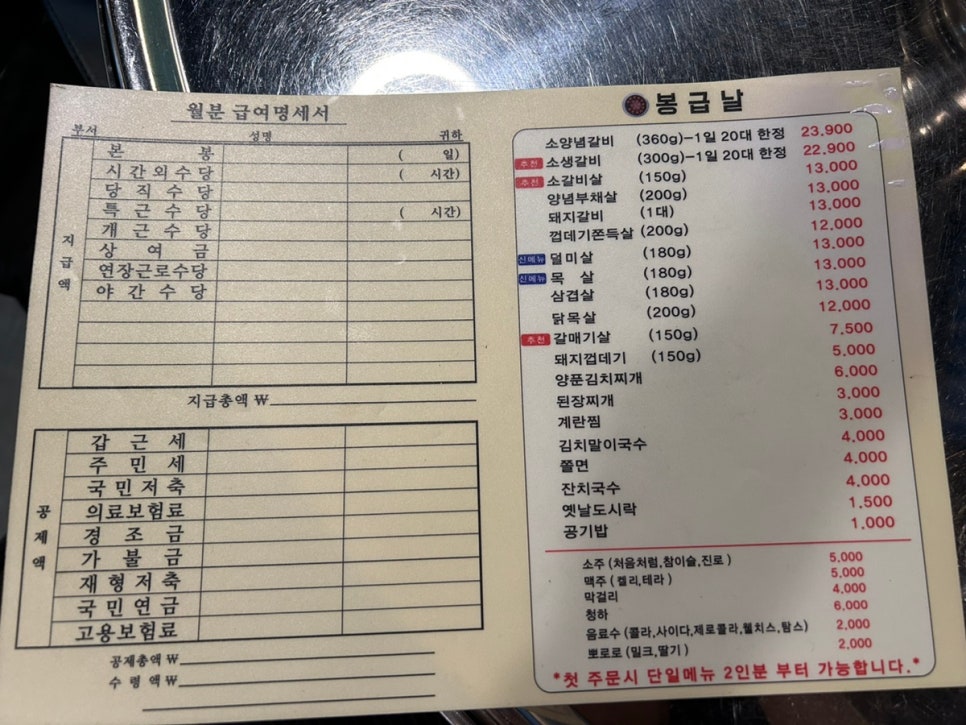 월분 급여명세서
부서 성명 귀하
지급액
본 봉 ( 일)
시간외수당 ( 시간)
당직수당
특근수당 ( 시간)
개근수당
상 여 금
연장근로수당
야간수당
지급총액 ₩
공제액
갑 근 세
주 민 세
국민저축
의료보험료
경 조 금
가 불 금
재형저축
국민연금
고용보험료
공제총액 ₩
수 령 액 ₩
봉급날
소양념갈비 (360g)-1일 20대 한정 23.900
추천 소생갈비 (300g)-1일 20대 한정 22.900
추천 소갈비살 (150g) 13,000
양념부채살 (200g) 13,000
돼지갈비 (1대) 13,000
껍데기쫀득살 (200g) 12,000
신메뉴 덜미살 (180g) 13,000
신메뉴 목 살 (180g) 13,000
삼겹살 (180g) 13,000
닭목살 (200g) 12,000
추천 갈매기살 (150g) 7.500
돼지껍데기 (150g) 5,000
양푼김치찌개 6,000
된장찌개 3,000
계란찜 3,000
김치말이국수 4,000
쫄면 4,000
잔치국수 4,000
옛날도시락 1,500
공기밥 1,000
소주 (처음처럼,참이슬,진로) 5,000
맥주 (켈리,테라) 5,000
막걸리 4,000
청하 6,000
음료수 (콜라,사이다,제로콜라,웰치스,탐스) 2,000
뽀로로 (밀크,딸기) 2,000
*첫 주문시 단일메뉴 2인분 부터 가능합니다.*